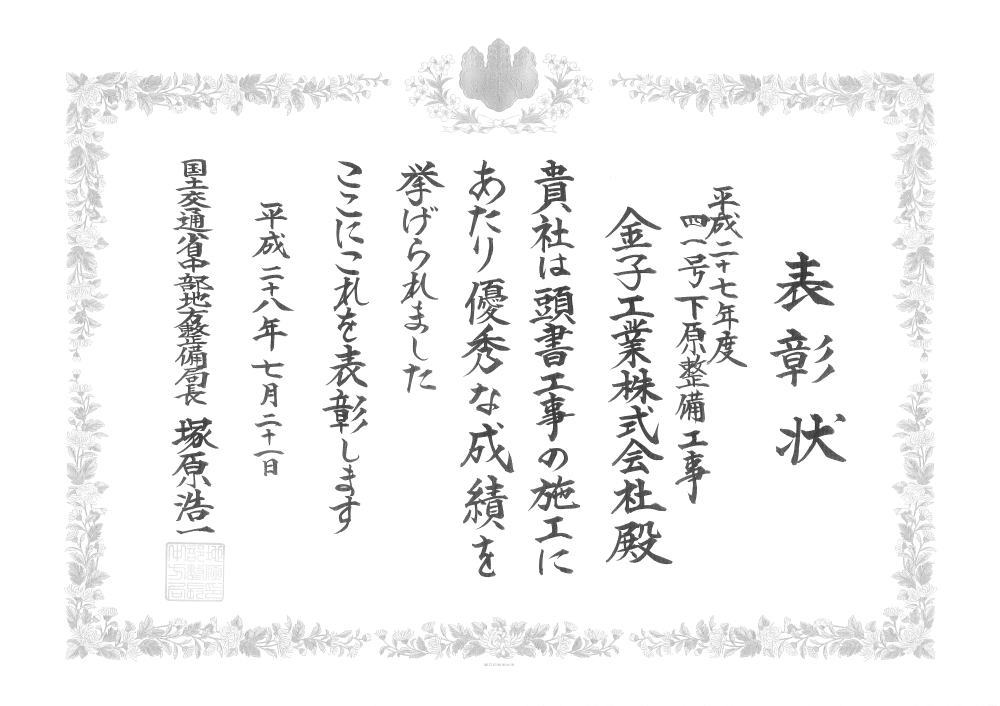 表彰状
平成二十七年度
四一号下原整備工事
金子工業株式会社殿
貴社は頭書工事の施工に
あたり優秀な成績を
挙げられました
ここにこれを表彰します
平成二十八年七月二十一日
国土交通省中部地方整備局長 塚原浩一